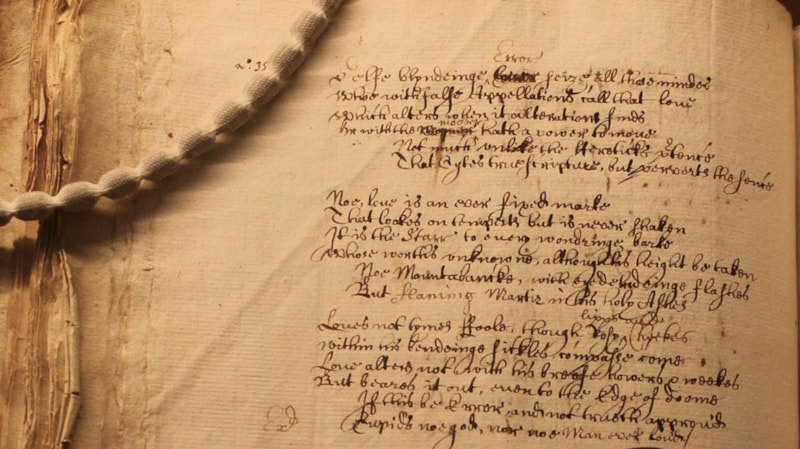 a°. 35
Error
Selfe blyndeinge seize all those mindes
Whoe with false Appellations call that love
Which alters when it alterations finds
mover
Or with the hath a power to move
Not much unlike the Hereticks ptence
That Cytes true scripture, but perverts the sence
Noe, love is an ever fixed marke
That lookes on tempests but is never shaken
It is the Starr to every wondringe barke
Whose worth's unknowne, although his height be taken
Noe Mountabancke, with eyedeludeinge flashes
But flaming Martir in his holy Ashes
lipps and
Loves not tymes ffoole, though Rosy Cheekes
within his bendeinge sickles compasse come
Love alters not with his breefe howers & weekes
But beares it out, even to the Edge of doome
If this be Error and not truth approud
Cupids noe god, nor noe Man ever loued